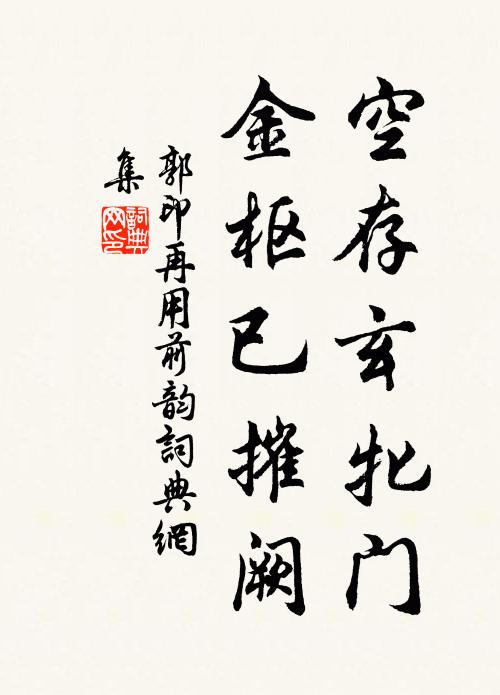 空存玄牝门
金枢已摧阙
郭印再用前韵詞典網
集
詞典网印